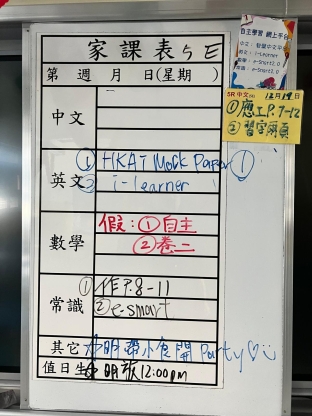 家課表 5E
自主學習 網上平台
中文：智愛中文平台
英文：i-Learner
數學：e-Smart2.0
常識：e-Smart2.0
5R 中文(4) 12月19日
①應工P.7-12
②習字兩頁
第 週 月 日(星期 )
中文
英文
① HKAT Mock Paper ①
② i-learner
數學
假：①自主
②卷二
常識
①作P.8-11
②e-smart
其它
明帶小食開Party♡
值日生
明放12:00pm